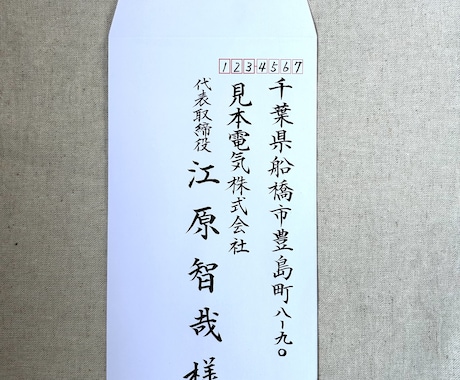 123-4567
千葉県船橋市豊島町八ー九〇
見本電気株式会社
代表取締役
江原智哉様